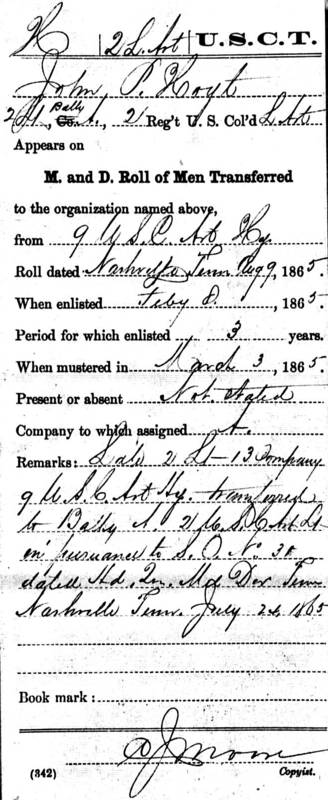 H | 2 L. Art | U.S.C.T.
John P. Hoyt
2 Lt, Batty Co. A., 2 Reg't U. S. Col'd L. Art
Appears on
M. and D. Roll of Men Transferred
to the organization named above,
from 9 U S C Art Hy.
Roll dated Nashville Tenn Aug 9, 1865.
When enlisted Feby 8, 1865.
Period for which enlisted 3 years.
When mustered in March 3, 1865.
Present or absent Not stated
Company to which assigned A.
Remarks: Late 2 Lt - 13 Company
9 U.S.C. Art Hy. transferred
to Batty A. 2 U.S.C. Art Lt
in pursuance to S.O. No. 38
dated Hd. Qr. Mil Div Tenn
Nashville Tenn. July 1865
Book mark :
Moore
(342) Copyist.